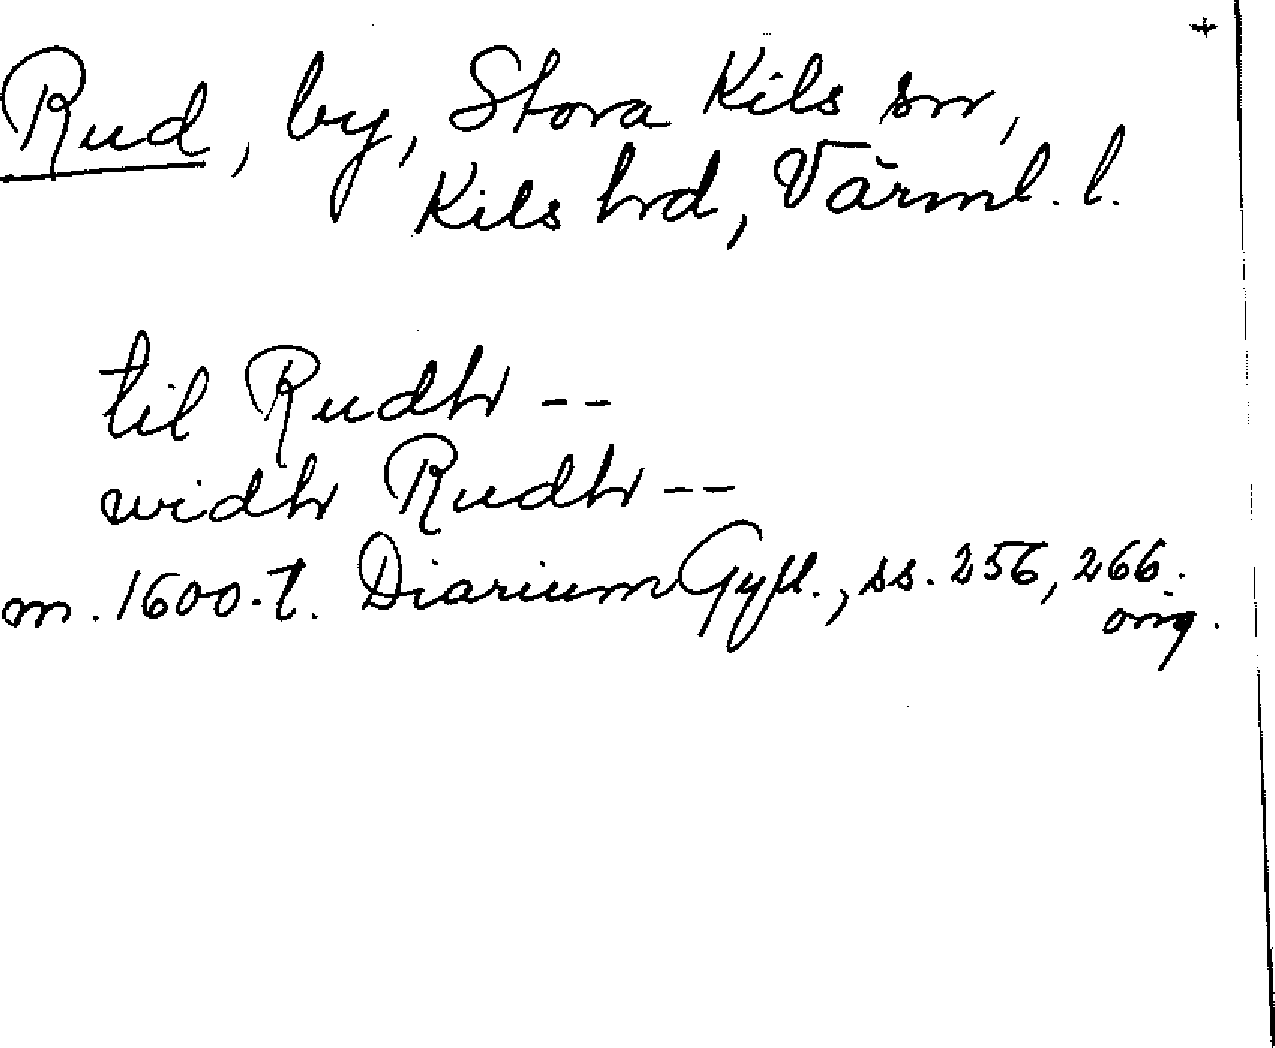 +
Rud, by, Stora Kils sn,
Kils hd, Värml. l.
til Rudh --
widh Rudh --
m. 1600-t. Diarium Gyll., ss. 256, 266.
orig.